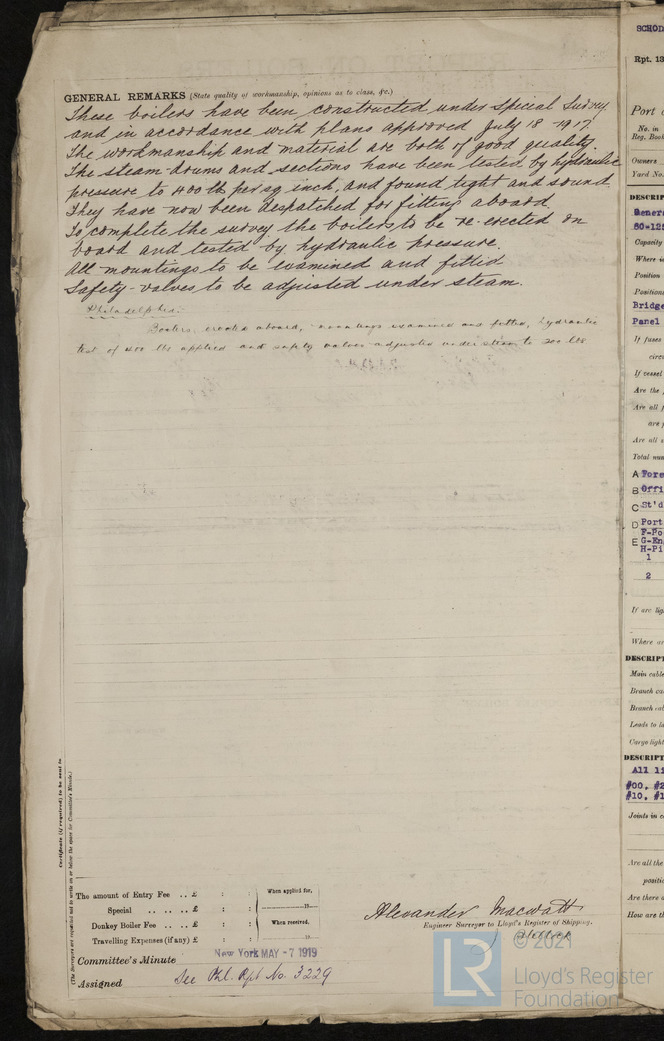 GENERAL REMARKS (State quality of workmanship, opinions as to class, &c.)
These boilers have been constructed under Special Survey
and in accordance with plans approved July 18-1917.
The workmanship and material are both of good quality.
The steam-drums and sections have been tested by hydraulic
pressure to 400 lb per sq inch, and found tight and sound
They have now been despatched for fitting aboard.
To complete the survey the boilers to be re-erected on
board and tested by hydraulic pressure.
All mountings to be examined and fitted
Safety-valves to be adjusted under steam.
Philadelphia:-
Boilers erected aboard, mountings examined and fitted, hydraulic
test of 400 lbs applied and safety valves adjusted under steam to 200 lbs
Certificate (if required) to be sent to
(The Surveyors are requested not to write on or below the space for Committee's Minute.)
The amount of Entry Fee .. £ : :
Special .. .. .. £ : :
Donkey Boiler Fee .. £ : :
Travelling Expenses (if any) £ : :
When applied for,
19
When received,
19
Committee's Minute New York MAY - 7 1919
Assigned See Phl. Rpt No. 3229
Alexander Macwatt
Engineer Surveyor to Lloyd's Register of Shipping.
© 2021
LR
Lloyd's Register
Foundation
SCHOD
Rpt. 13
Port
No. in
Reg. Book
Owners
Yard No.
DESCRIP
Genera
80-125
Capacity
Where
Position
Positions
Bridge
Panel
If fuses
circ
If vessel
Are the
Are all
are
Are all
Total num
A Fore
B Offi
C St'd
D Port
F-Po
E G-En
H-Pi
1
2
If arc lig
Where ar
DESCRIPT
Main cable
Branch ca
Branch cal
Leads to la
Cargo light
DESCRIPT
All li
#00, #2
#10, #1
Joints in c
Are all the
positi
Are there a
How are th